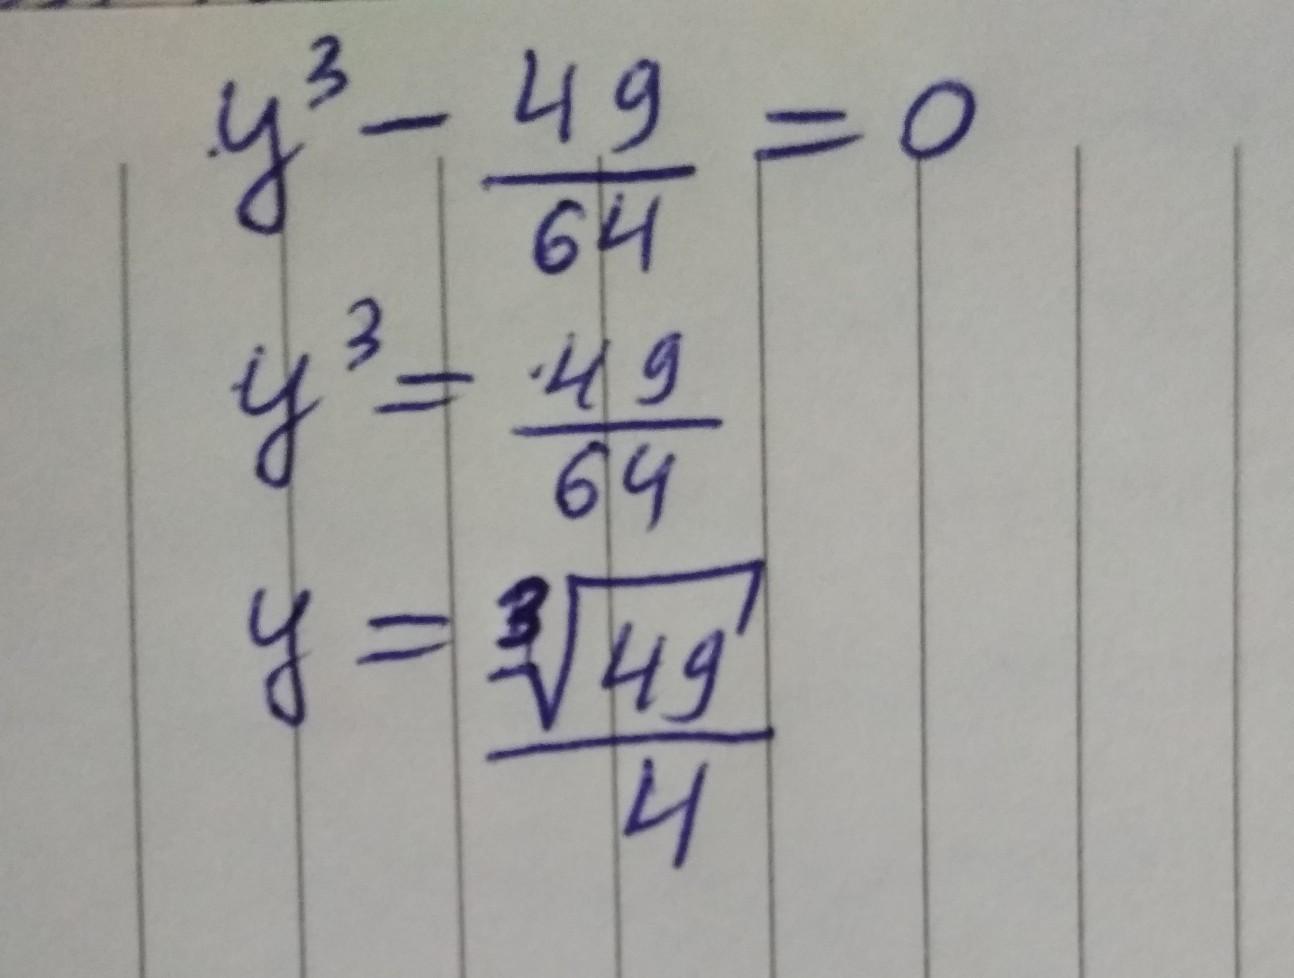 y³ - 49/64 = 0
y³ = 49/64
y = ∛49/4